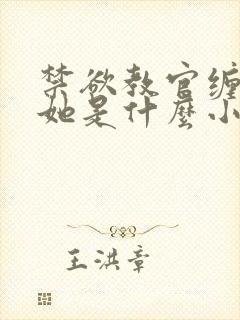 禁欲教官缠
她是什麼小
王洪章